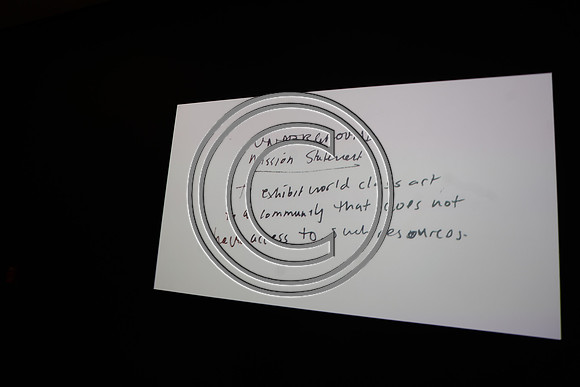 UNDERGROUND
Mission Statement
To exhibit world class art
in a community that does not
have access to such resources.